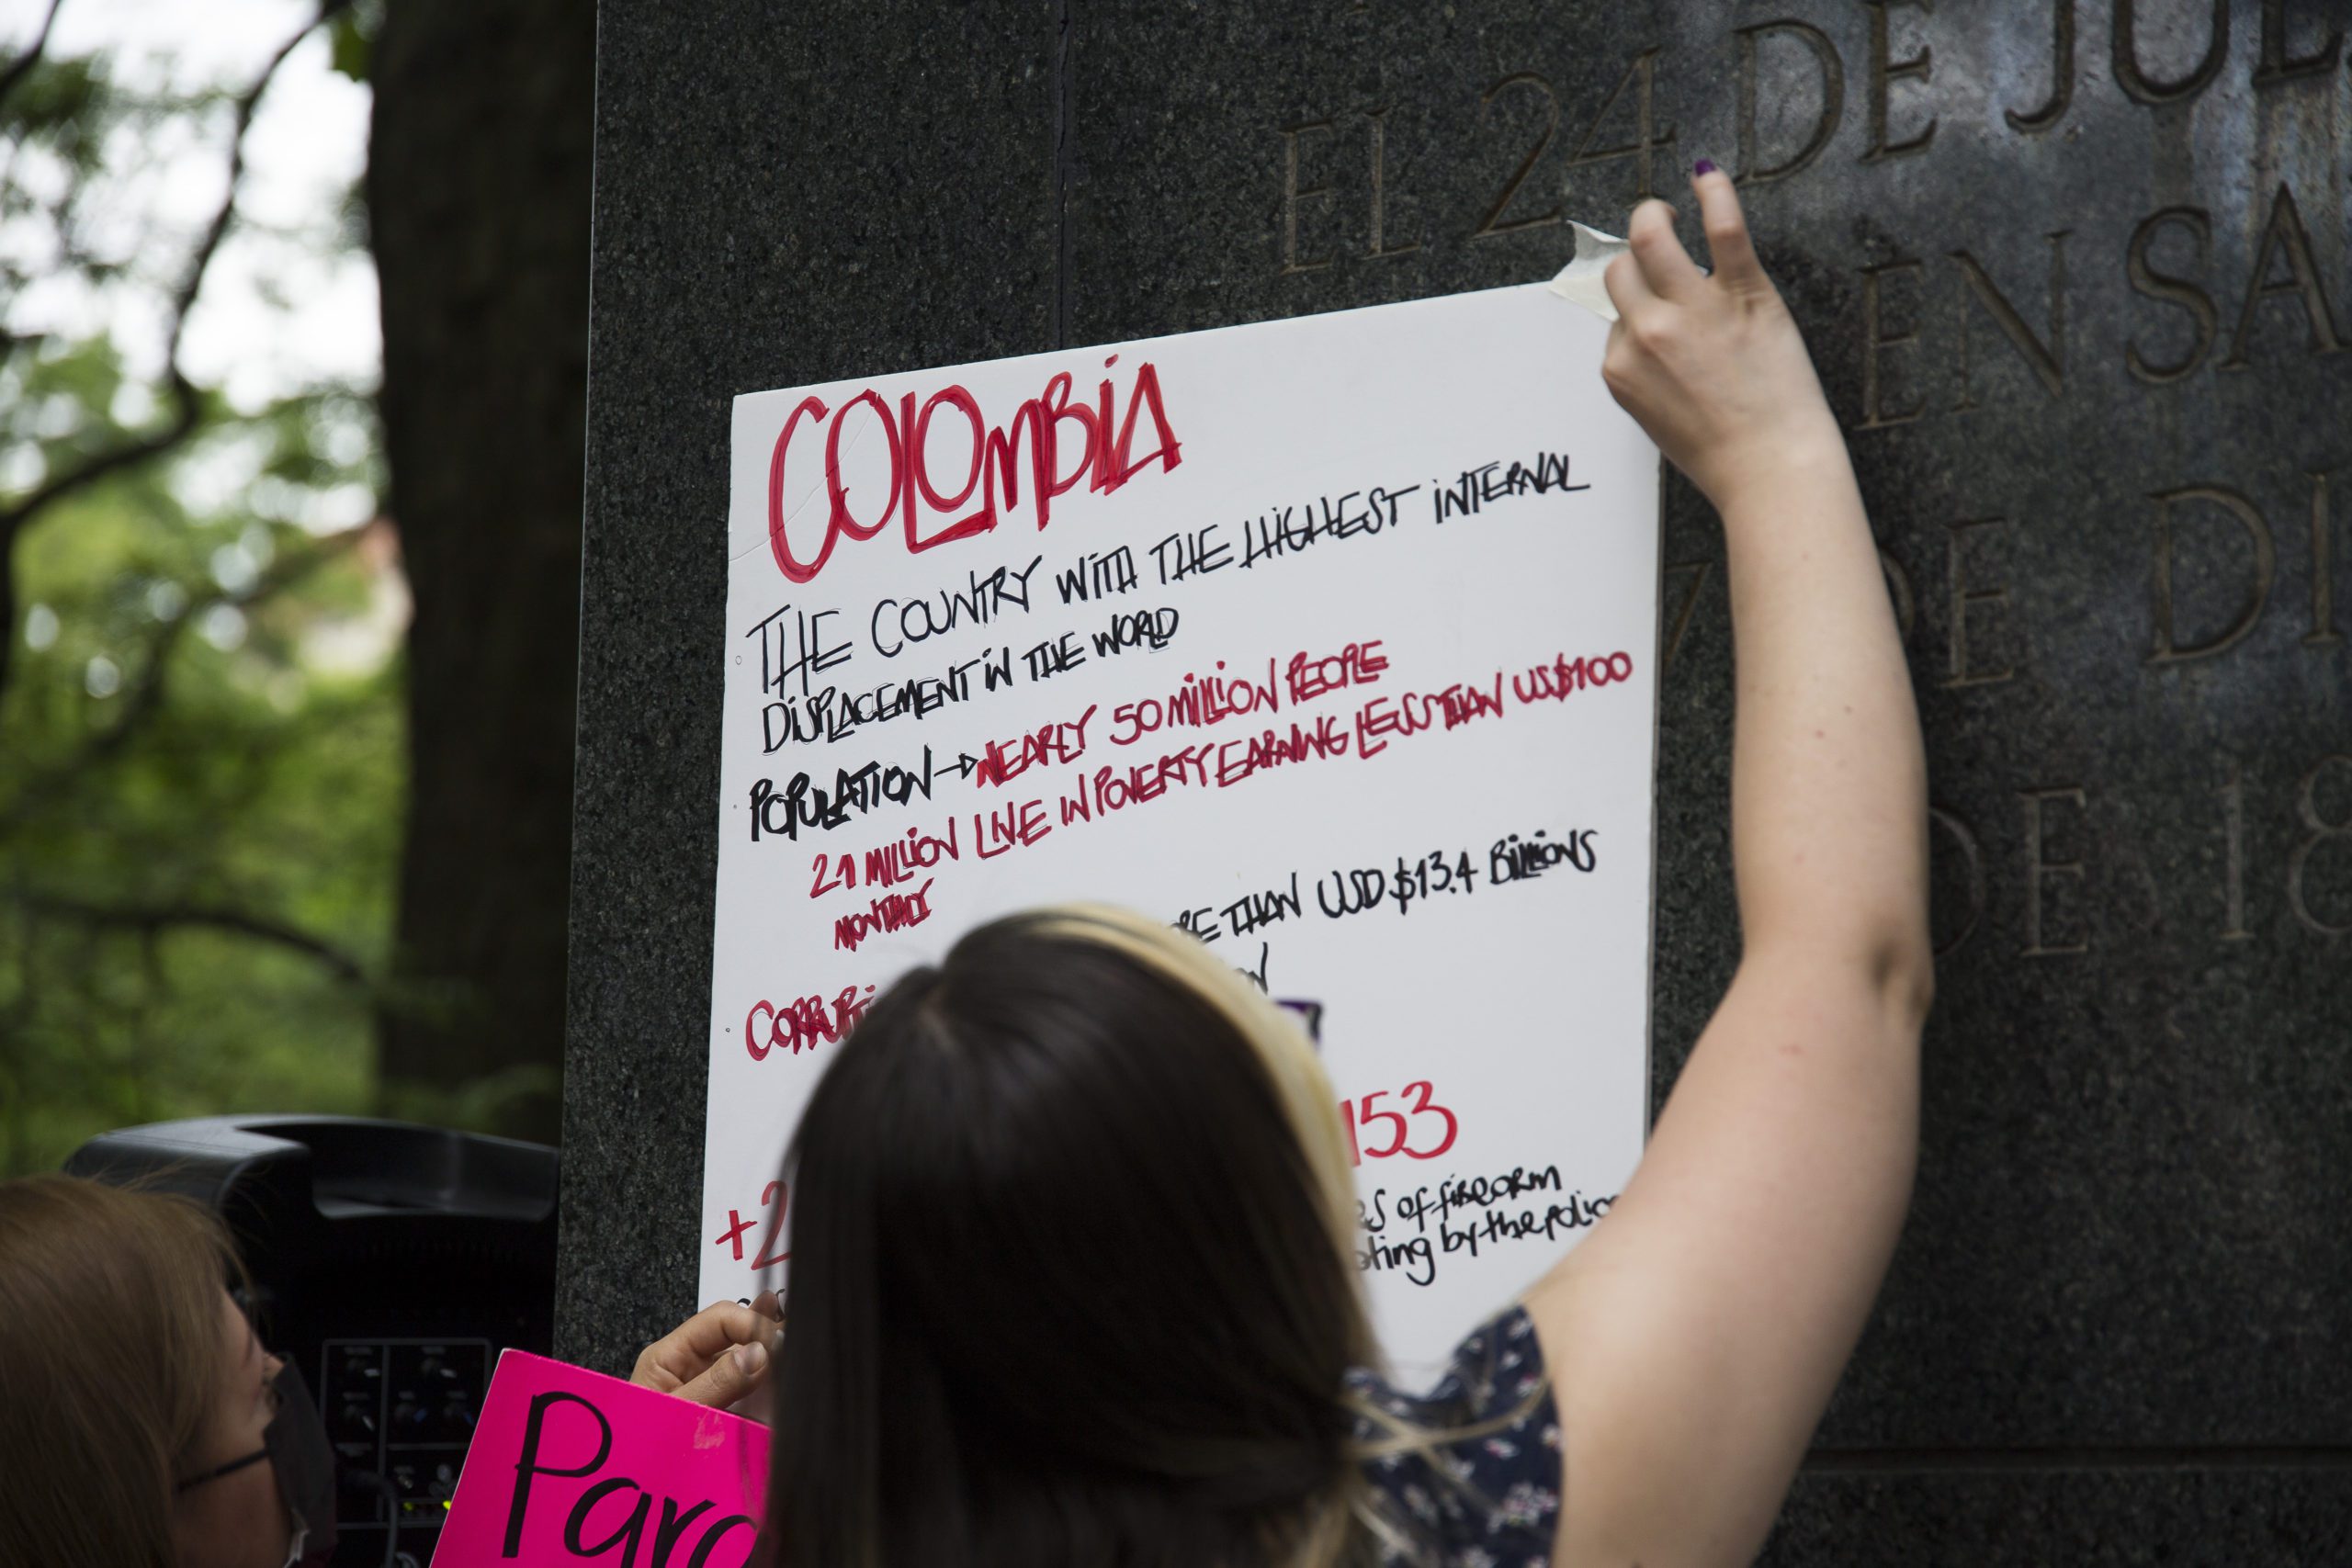 EL 24 DE JUL
EN SA
7 DE DI
DE 18
COLOMBIA
THE COUNTRY WITH THE HIGHEST INTERNAL
DISPLACEMENT IN THE WORLD
POPULATION → NEARLY 50 MILLION PEOPLE
21 MILLION LIVE IN POVERTY EARNING LESS THAN US$100
MONTHLY
THAN USD $13.4 BILLIONS
+2 153
of firearm
by the